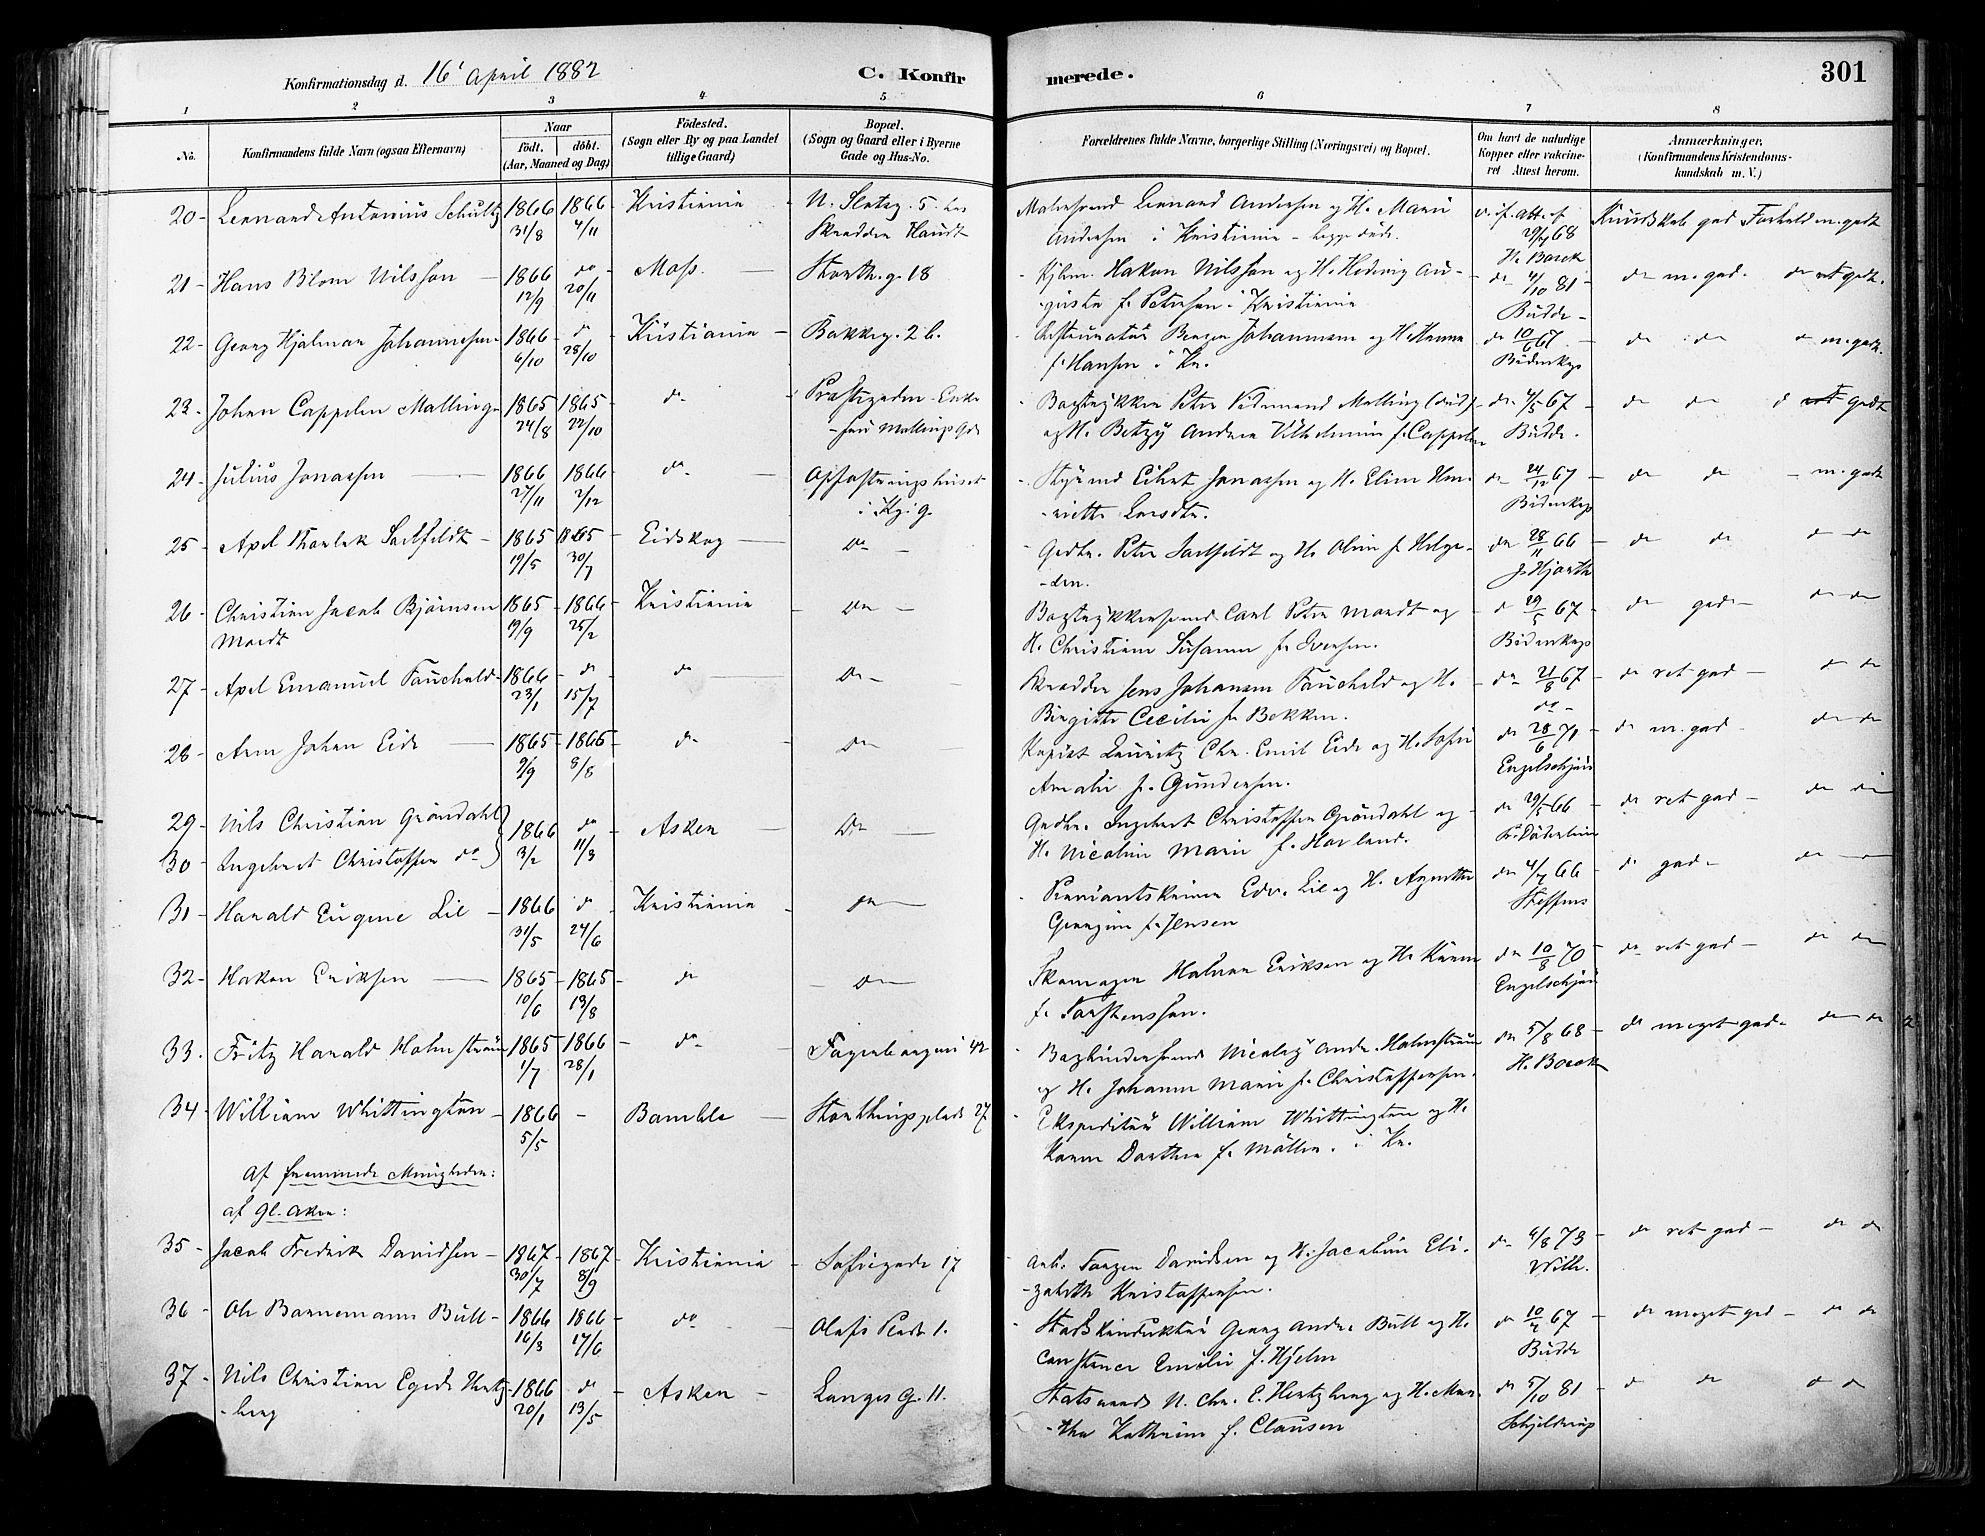 Konfirmationsdag d. 16' April 1882
C. Konfirmerede.
301
1 2 3 4 5 6 7 8
No.
Konfirmandens fulde Navn (ogsaa Efternavn)
Naar
födt. döbt.
(Aar, Maaned og Dag)
Födested.
(Sogn eller By og paa Landet
tillige Gaard)
Bopæl.
(Sogn og Gaard eller i Byerne
Gade og Hus-No.
Forældrenes fulde Navne, borgerlige Stilling (Næringsvei) og Bopæl.
Om havt de naturlige
Kopper eller vakcine-
ret Attest herom.
Anmærkninger.
(Konfirmandens Kristendoms-
kundskab m. V.)
20 - Lennard Antonius Schultz 1866 1866 Kristiania - N. Slotsg. 5 hos Malersvend Lennard Andersen og H. Marie v. if. att. af Kundskab god Forhold m. godt
31/8 4/11 Skrædder Haudt Andersen i Kristiania - begge døde. 29/4 68
H. Borck
21 - Hans Blom Nilsson - 1866 do Moss. - Storth. g. 18 Kjbm. Hakon Nilsson og H. Hedvig Au- do 4/10 81 - do m. god. do ret godt.
12/9 20/11 gusta f. Petersen i Kristiania Budde -
22 - Georg Hjalmar Johannesen 1866 - do Kristiania - Bakkeg. 2 b. Restauratør Johannesen og H. Hanna do 10/6 67 - do do do m. godt.
6/10 28/10 f. Hansen i Kr. Bidenkap
23 - Johan Cappelen Malling 1865 1865 do Præstegaden Enke- Bogtrykker Peter Malling (død) do 4/5 67 - do do d godt
24/8 22/10 fru Mallings Gd og H. Betzy Andrea Vilhelmine f. Cappelen Budde.
24 - Julius Jonassen - 1866 1866 do - Opfostringshuset Eilert Jonassen og H. Eline Hen- do 24/12 67 do do - m. godt
27/11 2/12 i Kr. g. riette Larsdtr. Bidenkap
25 - Axel Thorlak Saelfeldt - 1865 1865 Eidskog - Do - Gedtn. Peter Saelfeldt og H. Oline f. Helge- do 28/11 66 - do do do do
19/5 30/7 -den. J. Hjorth
26 - Christian Jacob Bjørnsen 1865 - 1866 Kristiania - Do - Bogtrykkersvend Carl Peter Mordt og d 29/5 67 - do god - do do
Mordt 19/9 25/2 H. Christiane Susanne f. Iversen. Bidenkap
27 - Axel Emanuel Fauchald 1866 - do do - Do - Skrædder Jens Johansen Fauchald og H. do 21/8 67 - do ret god - do do
23/1 15/7 Birgitte Cecilie f. Bakken. do -
28 - Johan Eide - 1865 - 1866 do - Do Kopist Lauritz Chr. Emil Eide og H. Sofie do 28/6 71 - do m. god - do do
9/9 8/8 Amalie f. Gundersen. Engelschjøn
29 - Nils Christian Gröndahl 1866 do - Asker - Do - Gedtn. Ingebret Christoffer Gröndahl og do 29/5 66 - do ret god - do do
30 - Ingebret Christoffer do 3/2 11/3 H. Nicoline Marie f. Havland.
31 - Harald Eugene Lie - 1866 do Kristiania - Do Edv. Lie og H. Agnethe do 4/7 66 d god - do -
31/5 24/6 Georgine f. Jensen Steffens
32 - Hakon Eriksen - 1865 - 1865 - do - Do Skomager Halvor Eriksen og H. Karen do 10/8 70 - do ret god - do do
10/6 13/8 f. Torstensson. Engelschjøn
33. Fritz Harald Holmström 1865 1866 - do Fagerborgvei 42 Bogbindersvend Nicolay Andr. Holmström do 5/8 68 - do meget god - do do
1/7 28/1 og H. Johanne Marie f. Christoffersen. H. Borck
34 - William Whittington - 1866 - Bamble - Storthingsplads 27 Ekspeditør William Whittington og H.
5/5 Karen Dorthea f. Möller. i Kr.
Af fremmede Menigheder:
af Gl. Aker:
35 - Jacob Fredrik Davidsen - 1867 - 1867 - Kristiania - Sofiegade 17 Arb. Davidsen og H. Jacobine Eli- do 6/8 73 - do ret god - do do
30/7 8/9 zabeth Kristoffersen. Wille.
36 - Ole Bornemann Bull - 1866 1866 - do - Olafs Plads 1. Stadskonduktør Georg Andr. Bull og H. do 10/4 67 - do meget god - do do
16/3 17/6 Constance Emilie f. Hjelm Budde
37 - Nils Christian Egede Hertz- 1866 do - Asker - Langes G. 11. Statsraad N. Chr. E. Hertzberg og H. Mar- do 5/10 81 - d do do do
-berg 20/1 13/5 -tha Kathrine f. Clausen Schjelderup